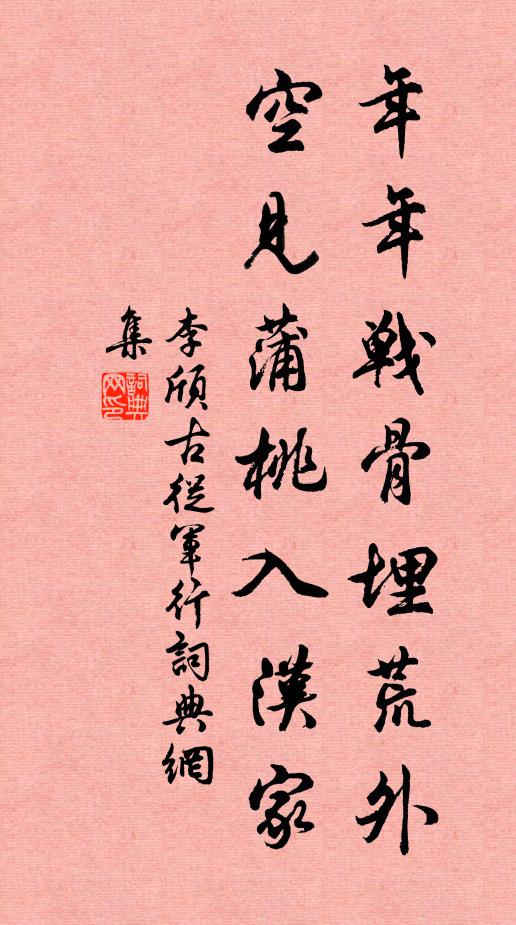 年年戰骨埋荒外
空見蒲桃入漢家
李頎古從軍行詞典網
集
詞典
网印